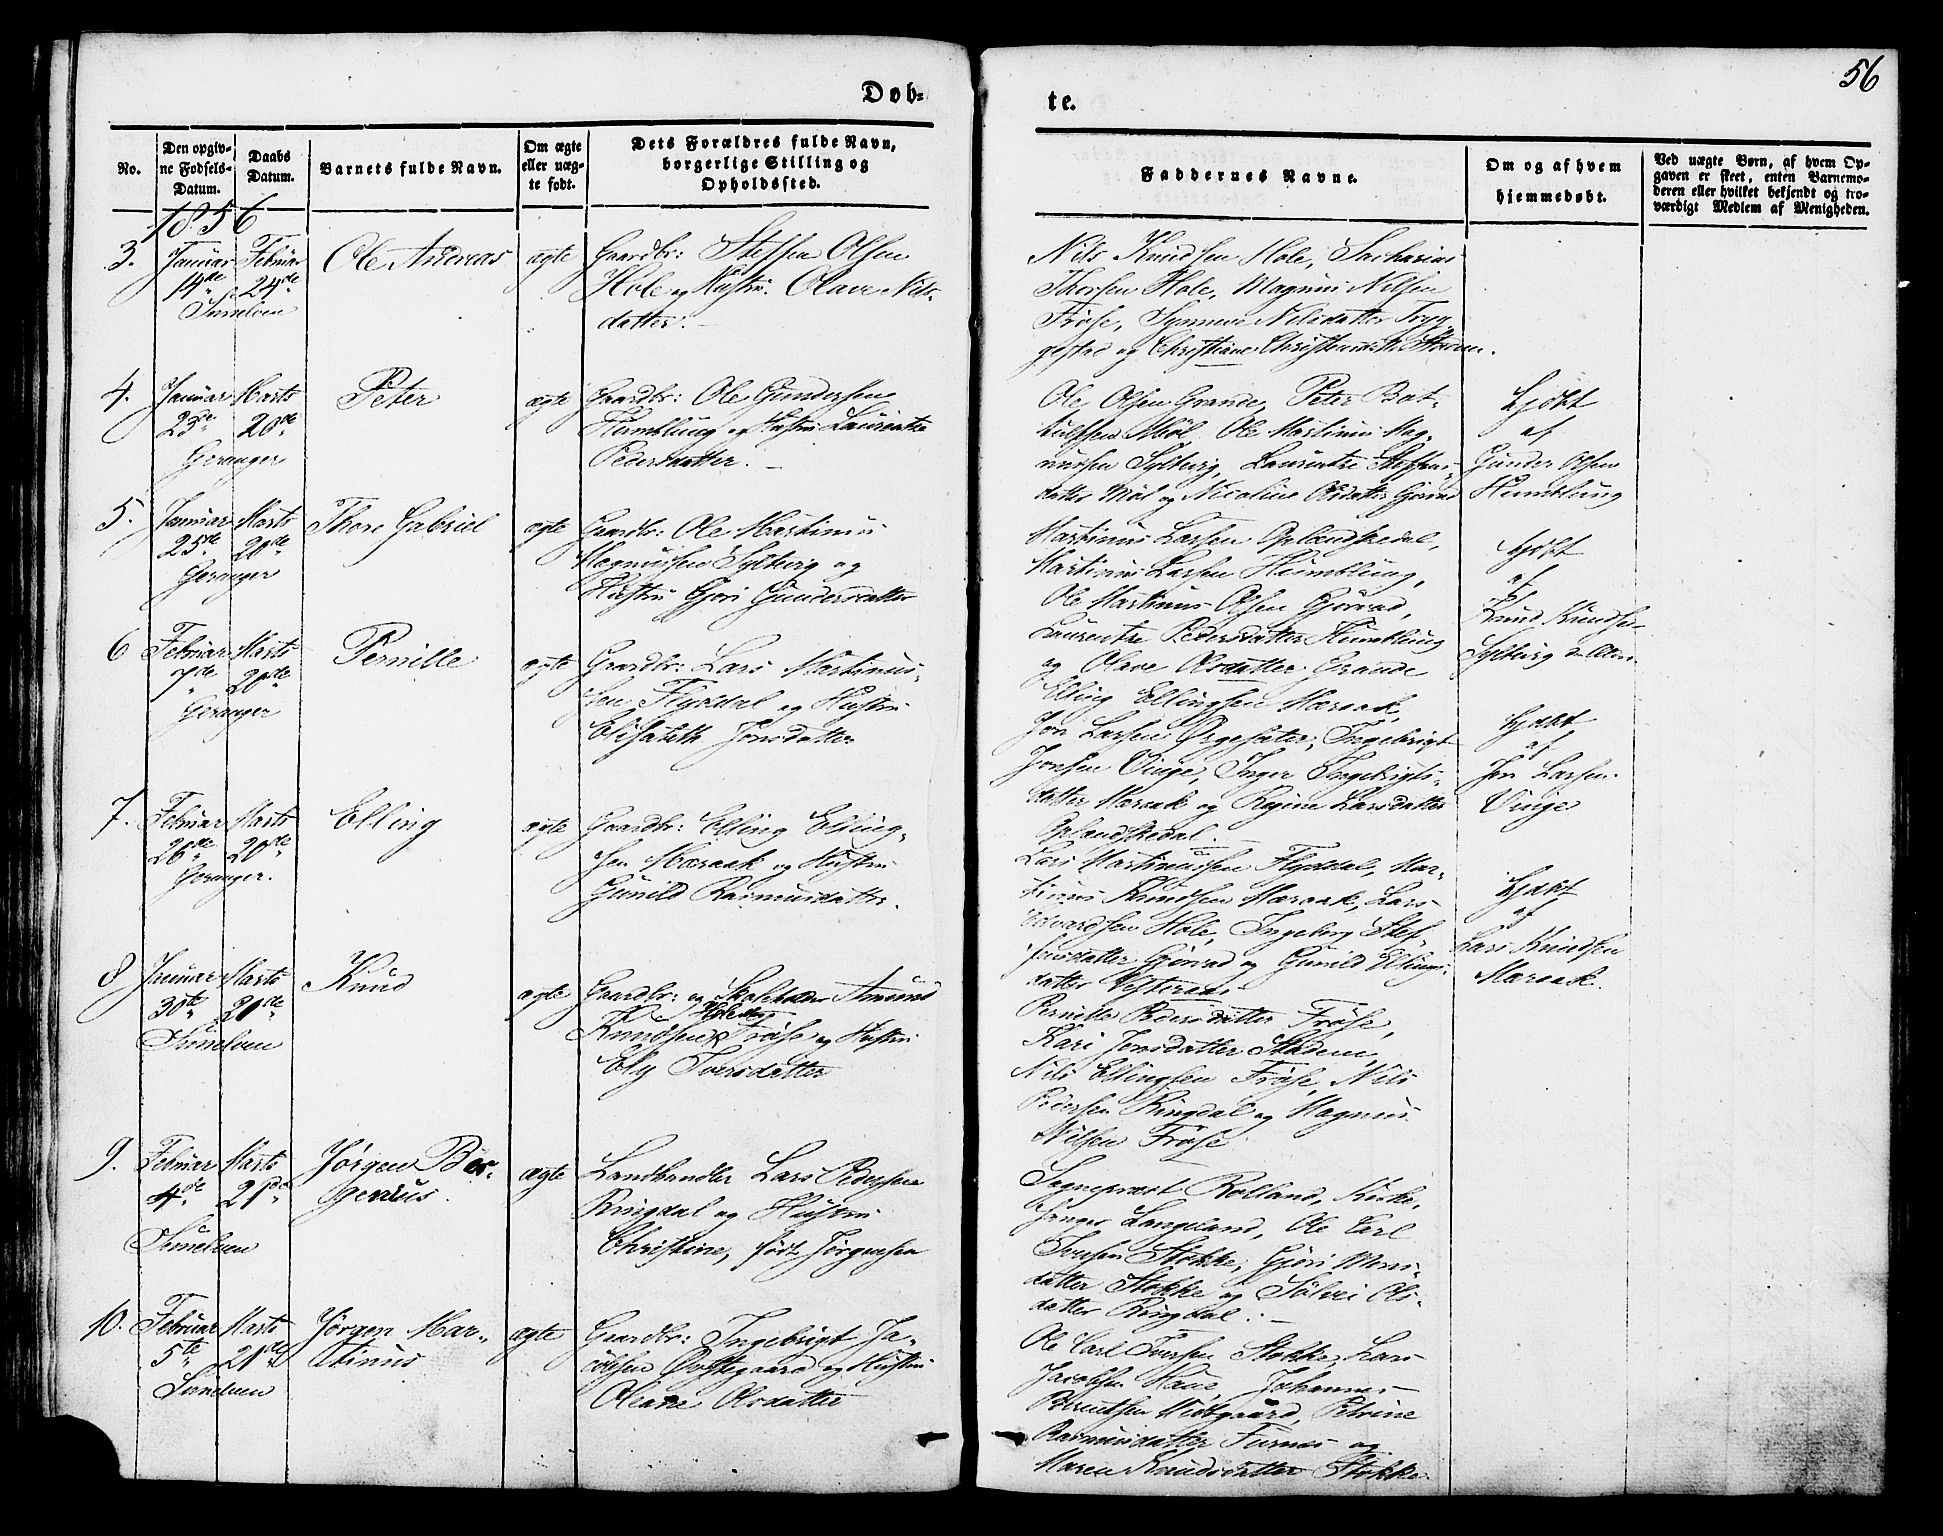 56
Døb-
te.
No.
Den opgiv-
ne Fødsels-
Datum.
Daabs
Datum.
Barnets fulde Navn.
Om ægte
eller uæg-
te født.
Dets Forældres fulde Navn,
borgerlige Stilling og
Opholdssted.
Faddernes Navne.
Om og af hvem
hjemmedøbt.
Ved uægte Børn, af hvem Op-
gaven er skeet, enten Barnemo-
deren eller hvilket bekjendt og tro-
værdigt Medlem af Menigheden.
1856
3.
Januar
14de
Sunelven
Februar
24de
Ole Andreas
ægte
Gaardbr: Steffen Olsen
Hole og Hustru Olave Nils-
datter.
Nils Knudsen Hole, Sacharias
Thorsen Hole, Magnus Nilsen
Frøse, Synneve Nilsdatter Tryg-
gestre og Christiane
4.
Januar
23de
Geranger
Marts
20de
Peter
ægte
Gaardbr: Ole Gundersen
Humblung og Hustru Laurentze
Pedersdatter.
Ole Olsen Grande, Peter Bot-
tulfsen Møl, Ole Martinus Mag-
nussen Sylterg, Laurentze Steffens-
datter Møl og Nicoline Olsdatter Gjørvad
Hjdbt
af
Gunder Olsen
Humblung
5.
Januar
25de
Geranger
Marts
20de
Thore Gabriel
ægte
Gaardbr: Ole Martinus
Magnussen Sylterg og
Hustru Gjøri Gundersdatter
Martinus Larsen Oplandskedal,
Martinus Larsen Humblung,
Ole Martinus Olsen Gjørvad,
Laurentze Pedersdatter Humblung
og Olave Olsdatter Grande
Hjdbt
af
Knud Knudsen
Sylterg
6
Februar
7de
Geranger
Marts
20de
Pernille
ægte
Gaardbr: Lars Martinus-
sen Flydal og Hustru
Elisabeth Jonsdatter
Elling Ellingsen Maraak,
Jon Larsen Ørgesæter, Ingebrigt
Jonsen Vinge, Inger Ingebrigts-
datter Maraak og Regine Larsdatter
Oplandskedal.
Hjdbt
af
Jon Larsen
Vinge
7.
Februar
26de
Geranger.
Marts
20de
Elling
ægte
Gaardbr: Elling Elling-
sen Maraak og Hustru
Gunild Rasmusdatter.
Lars Martinussen Flydal, Mar-
tinus Knudsen Maraak, Lars
Edvardsen Hole, Ingeborg Stef-
fensdatter Gjørvad og Gunild Ellings-
datter Vesteraas
Hjdbt
af
Lars Knudsen
Maraak.
8
Januar
30te
Sunelven
Marts
21de
Knud
ægte
Gaardbr: og Skoleholder Amund
Knudsen Frøse og Hustru
Eli Iversdatter
Pernille Pedersdatter Frøse,
Kari Jonsdatter Stadem,
Nils Ellingsen Frøse, Nils
Pedersen Ringdal og Magnus
Nilsen Frøse
9.
Februar
4de
Sunelven
Marts
21de
Jørgen Ber-
genius.
ægte
Landhandler Lars Pedersen
Ringdal og Hustru
Christine, født Jørgensen
Sognepræst Rolland, Kirke-
sanger Langeland, Ole Carl
Iversen Stokke, Gjøri Mons-
datter Stokke og Sølvei Ols-
datter Ringdal.
10.
Februar
5te
Sunelven
Marts
21de
Jørgen Mar-
tinus
ægte
Gaardbr: Ingebrigt Ja-
cobsen Øvstegaard og Hustru
Oleane Olsdatter
Ole Carl Iversen Stokke, Lars
Jacobsen Hauge, Johannes
Berntsen Midtgaard, Petrine
Rasmusdatter Furnes og
Maren Knudsdatter Stokke